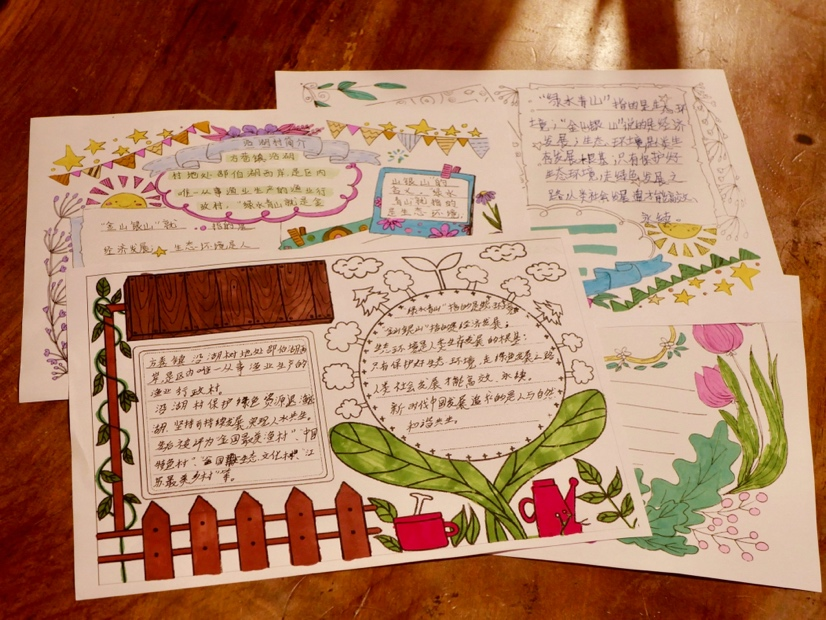 沿湖村简介
方巷镇沿湖
村地处邵伯湖西岸,是区内
唯一从事渔业生产的渔业村
政村。"绿水青山就是金
山银山的
含义,绿水
青山就指的
是生态环境,
"金山银山"就 指的是
经济发展, 生态环境是人
"绿水青山"指的是生态环
境;"金山银山"说的是经济
发展;生态环境是人类生
存发展的根基,只有保护好
生态环境,走绿色发展之
路人类社会发展才能高效、
永续。
方巷镇沿湖村地处邵伯湖西
岸,是区内唯一从事渔业生产的
渔业行政村。
沿湖村保护绿色资源退渔还
湖,坚持可持续发展,实现人水共生。
先后被评为"全国最美渔村"、中国
特色村"、"全国生态文化村"、"江
苏最美乡村"等。
"绿水青山"指的是生态环境
"金山银山"指的是经济发展;
生态环境是人类生存发展的根基;
只有保护好生态环境,走绿色发展之路
人类社会发展才能高效、永续。
新时代中国发展追求的是人与自然
和谐共生。